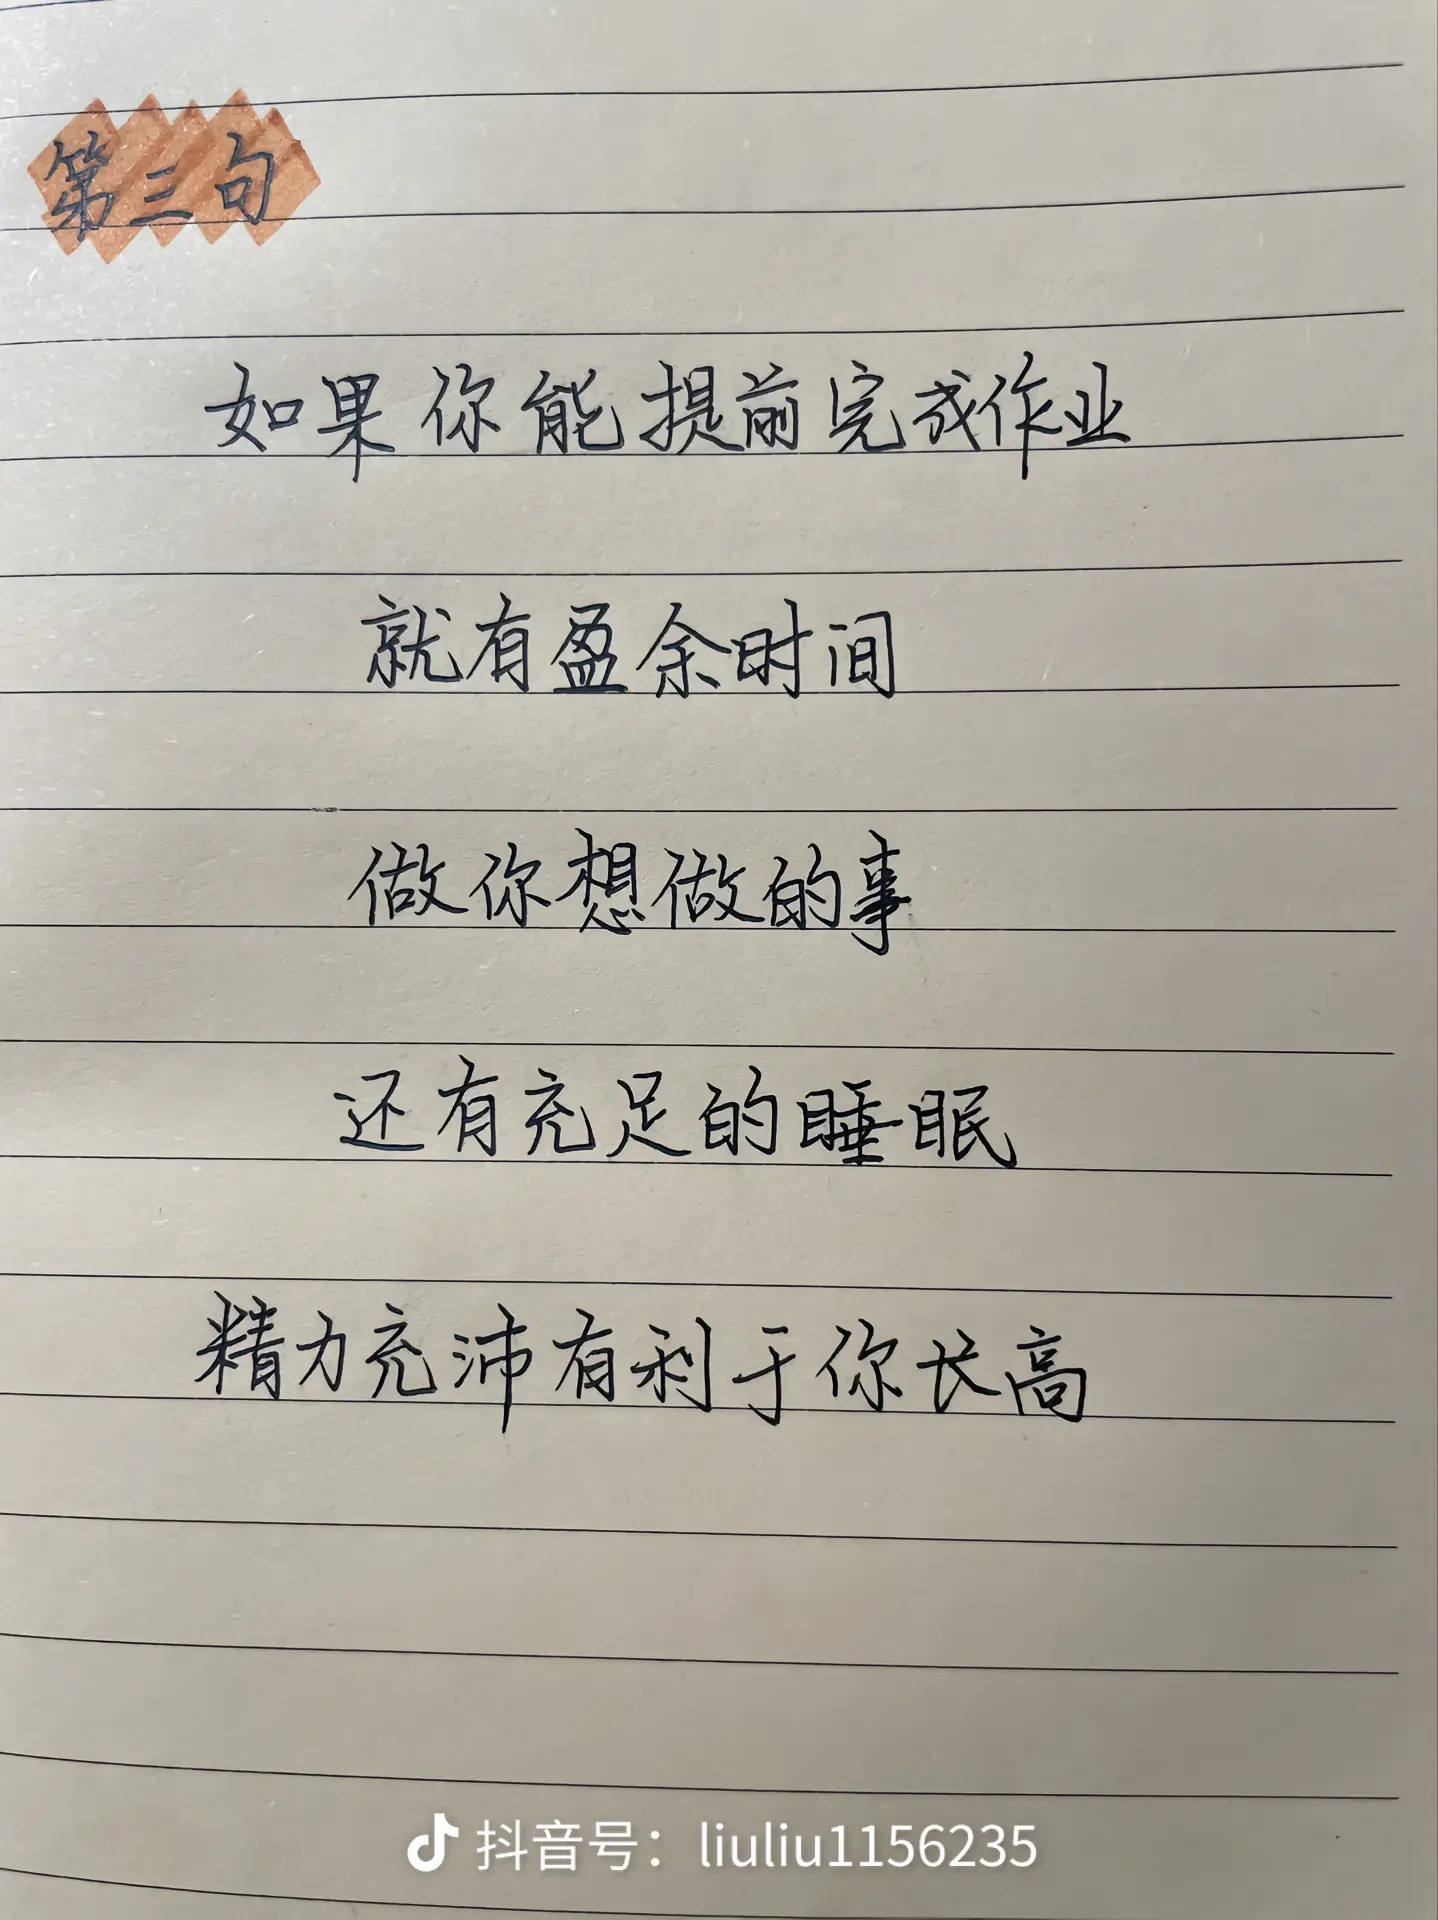 第三句
如果你能提前完成作业
就有盈余时间
做你想做的事
还有充足的睡眠
精力充沛有利于你长高
抖音号：liuliu1156235